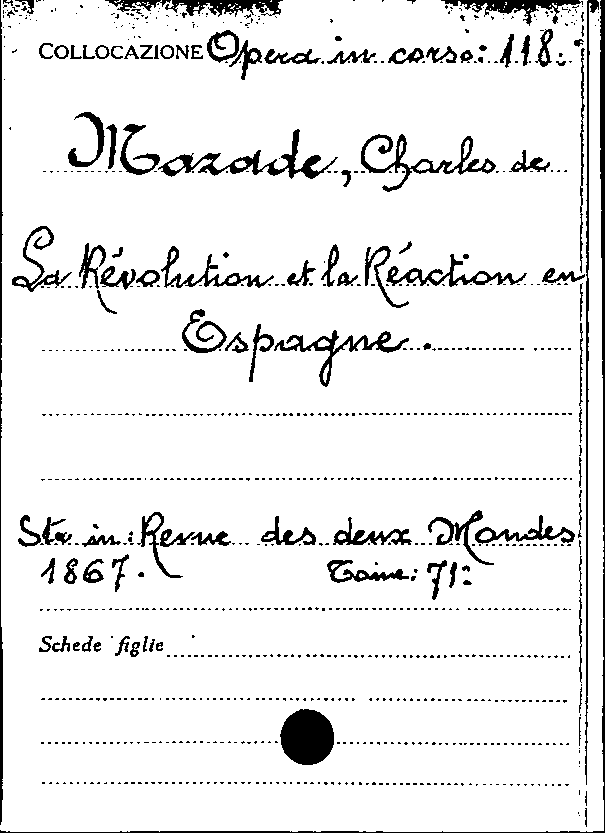 COLLOCAZIONE Opera in corso: 118:
Mazade, Charles de
La Révolution et la Réaction en
Espagne.
Sta in: Revue des deux Mondes
1867. Tome: 71:
Schede figlie